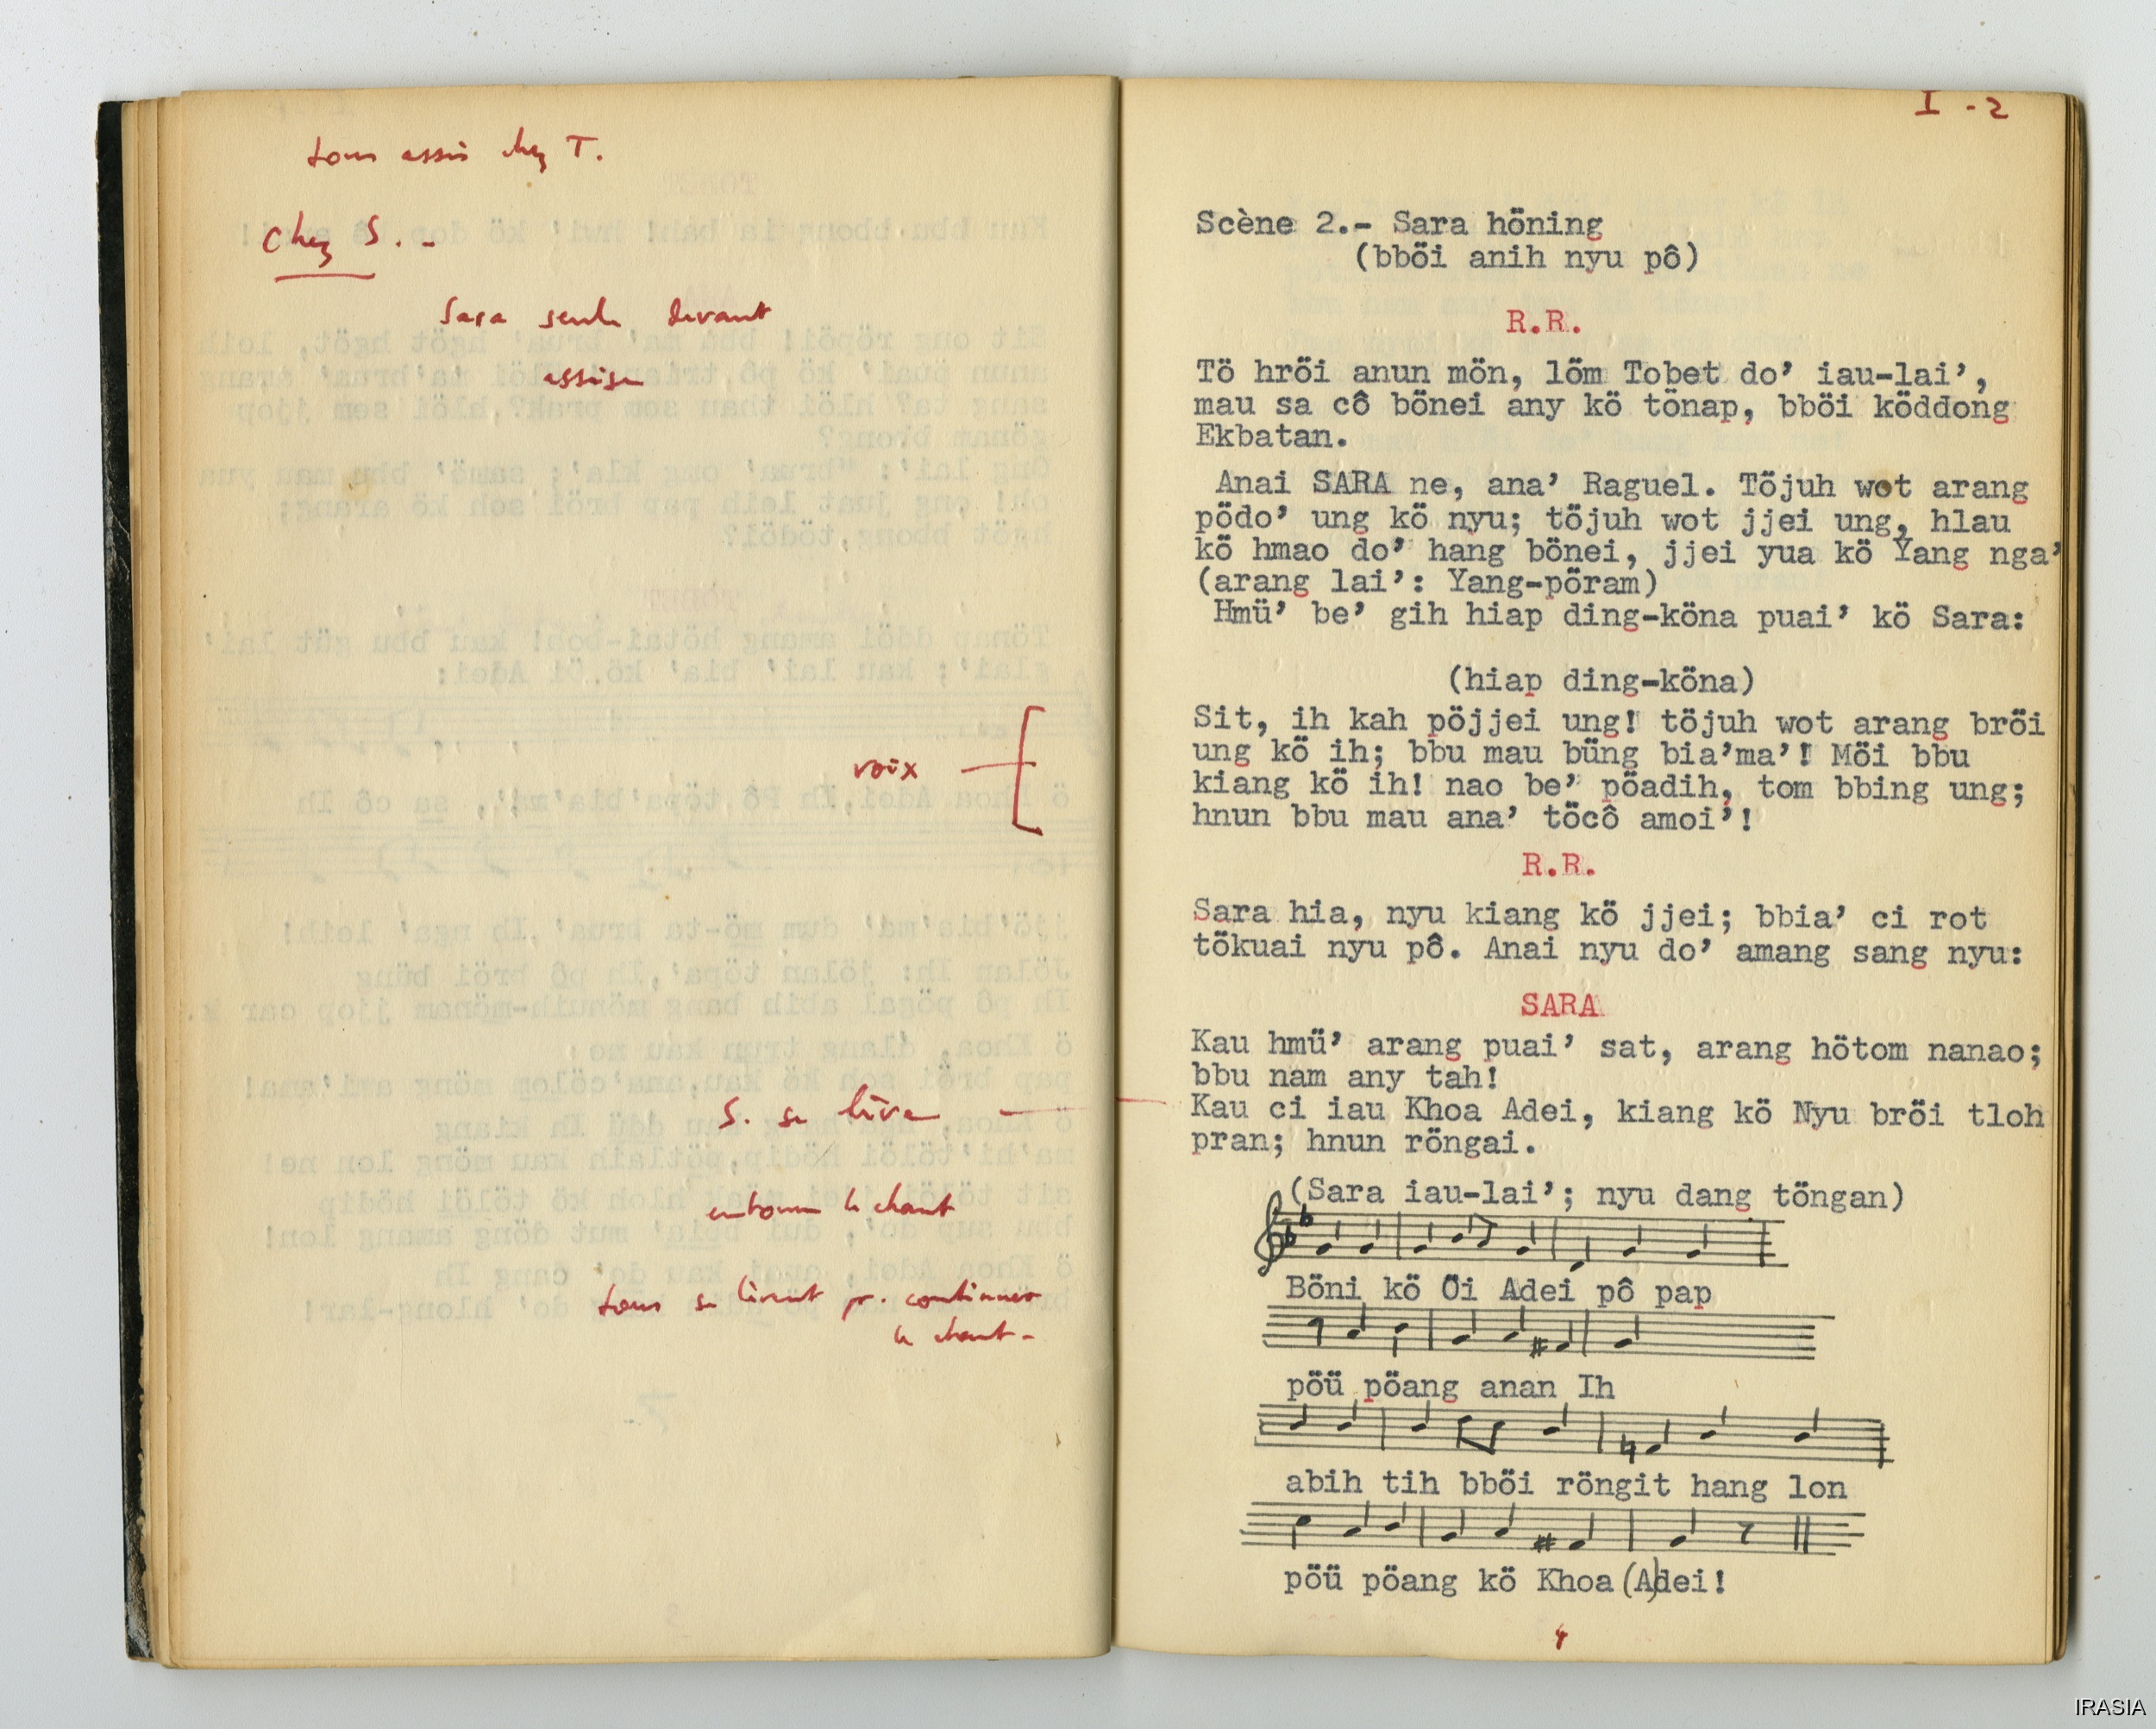 tous assis chez T.
Chez S. -
Sara seule devant
assise
voix
S. se lève
entonne le chant
tous se lèvent pr. continuer
le chant -
I - 2
Scène 2.- Sara höning
(bböi anih nyu pô)
R.R.
Tö hröi anun mön, löm Tobet do’ iau-lai’,
mau sa cô bönei any kö tönap, bböi köddong
Ekbatan.
Anai SARA ne, ana’ Raguel. Töjuh wot arang
pödo’ ung kö nyu; töjuh wot jjei ung, hlau
kö hmao do’ hang bönei, jjei yua kö Yang nga’
(arang lai’: Yang-pöram)
Hmü’ be’ gih hiap ding-köna puai’ kö Sara:
(hiap ding-köna)
Sit, ih kah pöjjei ung! töjuh wot arang bröi
ung kö ih; bbu mau büng bia’ma’! Möi bbu
kiang kö ih! nao be’ pöadih, tom bbing ung;
hnun bbu mau ana’ töcô amoi’!
R.R.
Sara hia, nyu kiang kö jjei; bbia’ ci rot
tökuai nyu pô. Anai nyu do’ amang sang nyu:
SARA
Kau hmü’ arang puai’ sat, arang hötom nanao;
bbu nam any tah!
Kau ci iau Khoa Adei, kiang kö Nyu bröi tloh
pran; hnun röngai.
(Sara iau-lai’; nyu dang töngan)
Böni kö Öi Adei pô pap
pöü pöang anan Ih
abih tih bböi röngit hang lon
pöü pöang kö Khoa (A)dei!
4
IRASIA